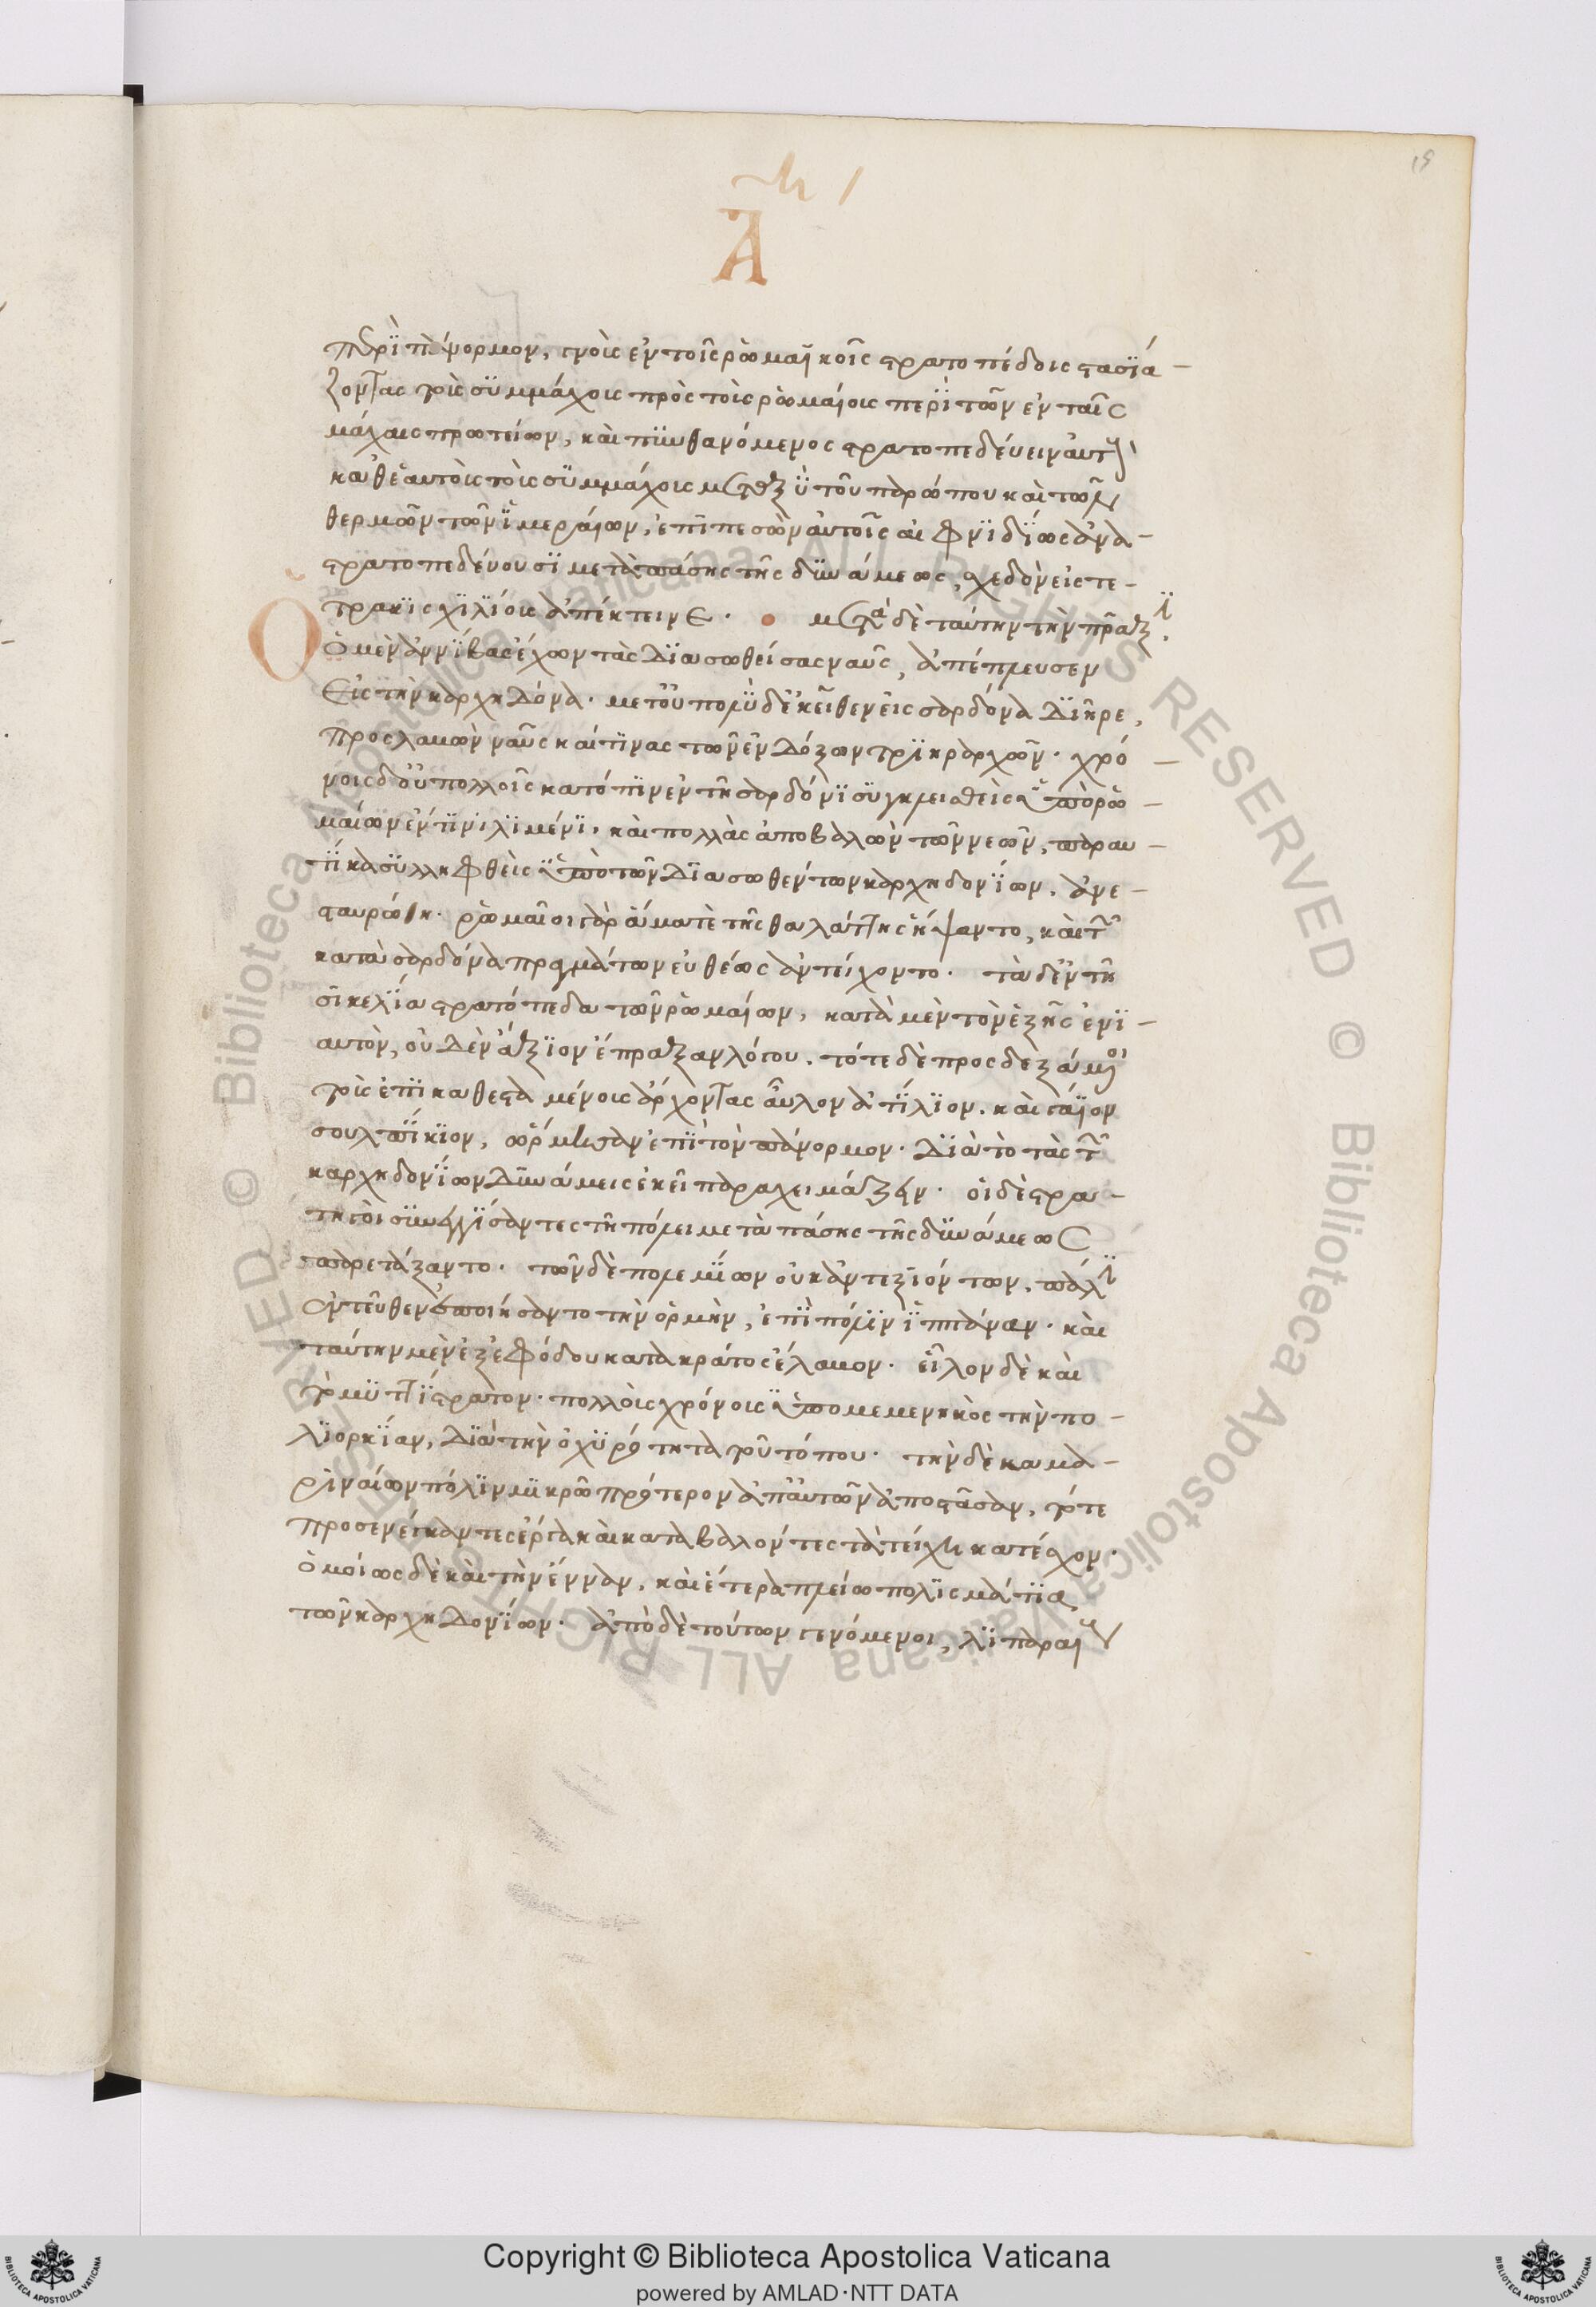 ιϛ
Α
περὶ πάνορμον, γνοὺς ἐν τοῖς ῥωμαϊκοῖς στρατοπέδοις στασιά-
ζοντας τοὺς συμμάχους πρὸς τοὺς ῥωμαίους περὶ τῶν ἐν ταῖς
μάχαις πρωτείων, καὶ πυνθανόμενος στρατοπεδεύειν αὐτοὺς
καθ' ἑαυτοὺς τοὺς συμμάχους μεταξὺ τοῦ παρώπου καὶ τῶν
θερμῶν τῶν ἱμεραίων, ἐπιπεσὼν αὐτοῖς αἰφνιδίως ἀνα-
στρατοπεδεύουσι μετὰ πάσης τῆς δυνάμεως, σχεδὸν εἰς τε-
τρακισχιλίους ἀπέκτεινε. μετὰ δὲ ταύτην τὴν πρᾶξιν
ὁ μὲν ἀννίβας ἔχων τὰς διασωθείσας ναῦς, ἀπέπλευσεν
εἰς τὴν καρχηδόνα. μετ' οὐ πολὺ δ' ἐκεῖθεν εἰς σαρδόνα διῆρε,
προσλαβὼν ναῦς καί τινας τῶν ἐνδόξων τριηράρχων. χρό-
νοις δ' οὐ πολλοῖς κατόπιν ἐν τῇ σαρδόνι συγκλεισθεὶς ὑπὸ ῥω-
μαίων ἔν τινι λιμένι, καὶ πολλὰς ἀποβαλὼν τῶν νεῶν, παραυ-
τίκα συλληφθεὶς ὑπὸ τῶν διασωθέντων καρχηδονίων, ἀνε-
σταυρώθη. ῥωμαῖοι γὰρ ἅμα τε τῆς θαλάττης ἥψαντο, καὶ τῶν
κατὰ σαρδόνα πραγμάτων εὐθέως ἀντείχοντο. τὰ δ' ἐν τῇ
σικελίᾳ στρατόπεδα τῶν ῥωμαίων, κατὰ μὲν τὸν ἑξῆς ἐνι-
αυτὸν, οὐδὲν ἄξιον ἔπραξαν λόγου. τότε δὲ προσδεξάμενοι
τοὺς ἐπικαθεσταμένους ἄρχοντας αὖλον ἀτίλιον, καὶ γάϊον
σουλπίκιον, ὥρμησαν ἐπὶ τὸν πάνορμον. διὰ τὸ τὰς τῶν
καρχηδονίων δυνάμεις ἐκεῖ παραχειμάζειν. οἱ δὲ στρα-
τηγοὶ συνεγγίσαντες τῇ πόλει μετὰ πάσης τῆς δυνάμεως
παρετάξαντο. τῶν δὲ πολεμίων οὐκ ἀντεξιόντων, πάλιν
ἐντεῦθεν ἐποιήσαντο τὴν ὁρμὴν, ἐπὶ πόλιν ἱππάναν. καὶ
ταύτην μὲν ἐξ ἐφόδου κατὰ κράτος ἔλαβον. εἷλον δὲ καὶ
τὸ μυττίστρατον. πολλοὺς χρόνους ὑπομεμενηκὸς τὴν πο-
λιορκίαν, διὰ τὴν ὀχυρότητα τοῦ τόπου. τὴν δὲ καμα-
ριναίων πόλιν μικρῷ πρότερον ἀπ' αὐτῶν ἀποστᾶσαν, τότε
προσενέγκαντες ἔργα καὶ καταβαλόντες τὰ τείχη κατέσχον.
ὁμοίως δὲ καὶ τὴν ἔνναν, καὶ ἕτερα πλείω πολισμάτια
τῶν καρχηδονίων. ἀπὸ δὲ τούτων γενόμενοι, λιπαραίους
Copyright © Biblioteca Apostolica Vaticana
powered by AMLAD·NTT DATA